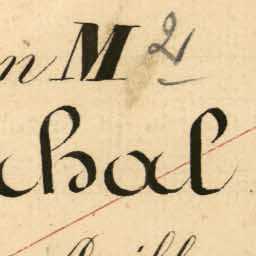 n M 2
chal